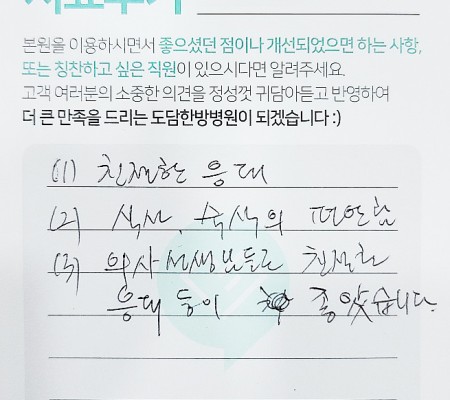 본원을 이용하시면서 좋으셨던 점이나 개선되었으면 하는 사항,
또는 칭찬하고 싶은 직원이 있으시다면 알려주세요.
고객 여러분의 소중한 의견을 정성껏 귀담아듣고 반영하여
더 큰 만족을 드리는 도담한방병원이 되겠습니다 :)
(1) 친절한 응대
(2) 식사, 숙식의 편안함
(3) 의사선생님들도 친절한
응대 등이 좋았습니다.